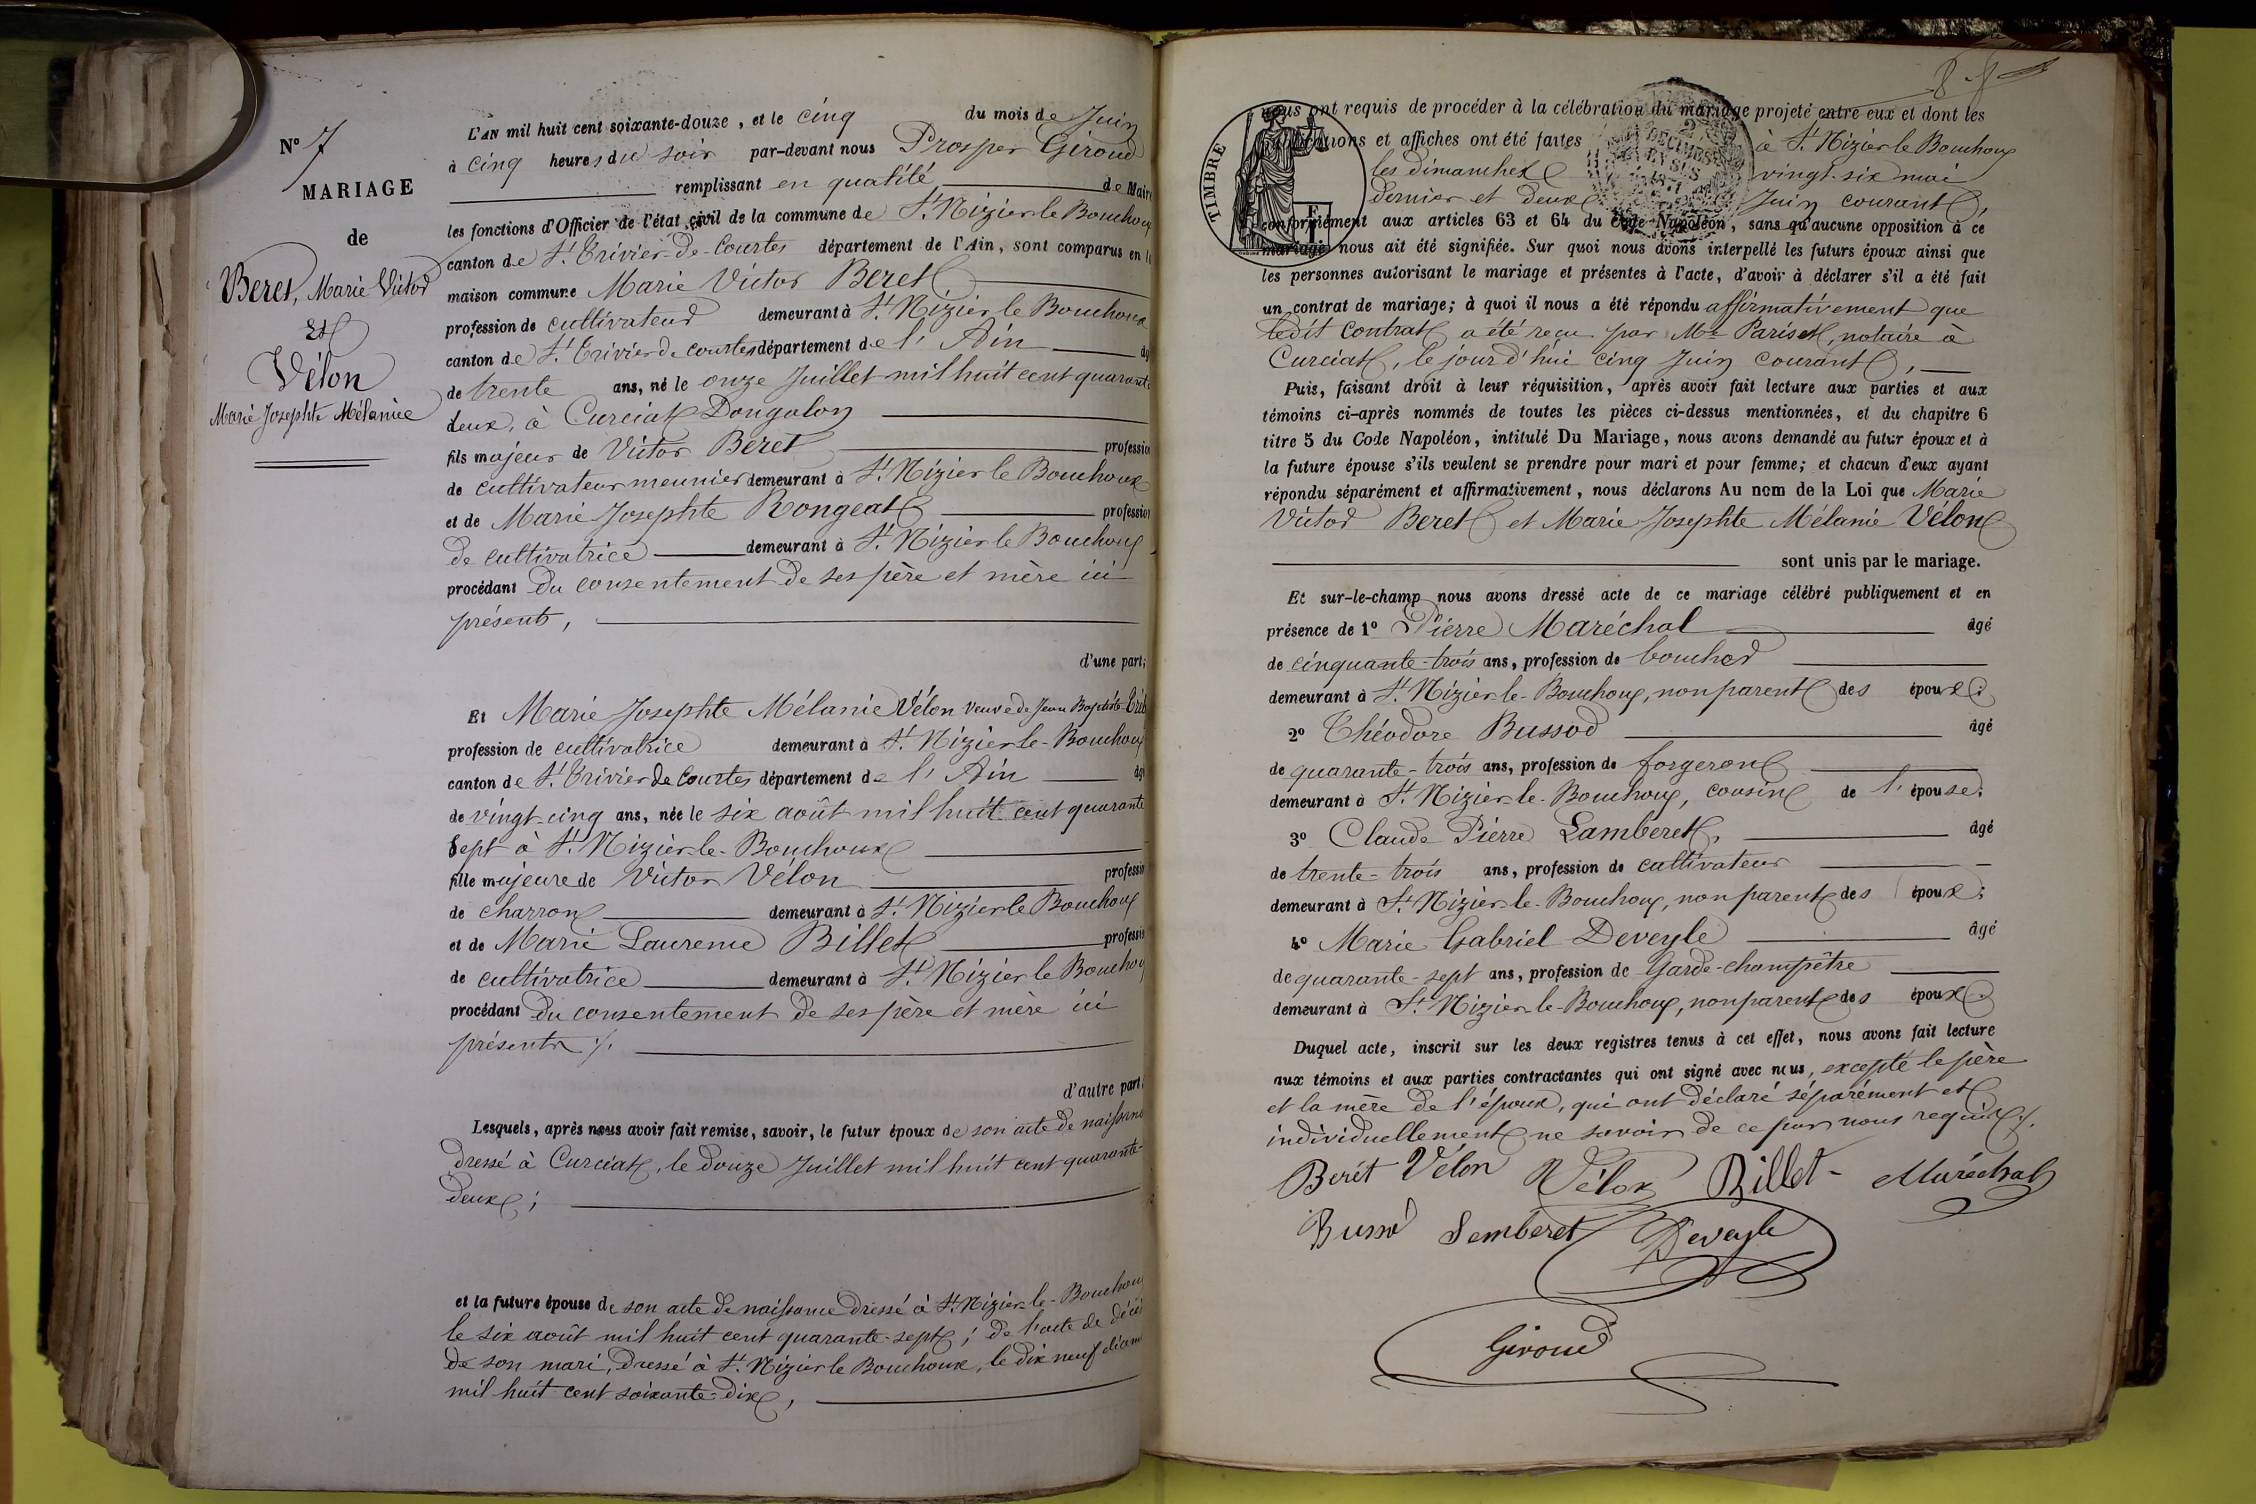 N° 7
MARIAGE
de
Beret, Marie Victor
Et
Vélon
Marie Josephte Mélanie
L'AN mil huit cent soixante-douze, et le cinq du mois de Juin
à cinq heures du soir par-devant nous Prosper Giroud
remplissant en qualité de Maire
les fonctions d'Officier de l'état civil de la commune de St Nizier le Bouchoux
canton de St Trivier-de-Courtes département de l'Ain, sont comparus en la
maison commune Marie Victor Beret
profession de cultivateur demeurant à St Nizier le Bouchoux
canton de St Trivier de Courtes département de l'Ain âgé
de trente ans, né le onze Juillet mil huit cent quarante
deux, à Curciat Dongalon
fils majeur de Victor Beret profession
de cultivateur meunier demeurant à St Nizier le Bouchoux
et de Marie Josephte Rongeat profession
de cultivatrice demeurant à St Nizier le Bouchoux
procédant du consentement de ses père et mère ici
présents,
d'une part;
Et Marie Josephte Mélanie Vélon veuve de Jean Baptiste
profession de cultivatrice demeurant à St Nizier-le-Bouchoux
canton de St Trivier de Courtes département de l'Ain âgé
de vingt-cinq ans, née le six août mil huit cent quarante
sept à St Nizier-le-Bouchoux
fille majeure de Victor Vélon profession
de charron demeurant à St Nizier le Bouchoux
et de Marie Laurence Billet profession
de cultivatrice demeurant à St Nizier le Bouchoux
procédant du consentement de ses père et mère ici
présents ;/.
d'autre part.
Lesquels, après nous avoir fait remise, savoir, le futur époux de son acte de naissance
dressé à Curciat, le douze Juillet mil huit cent quarante-
deux ;
et la future épouse de son acte de naissance dressé à St Nizier-le-Bouchoux
le six août mil huit cent quarante-sept ; de l'acte de décès
de son mari, dressé à St Nizier le Bouchoux, le dix neuf décem
mil huit cent soixante-dix,
TIMBRE
nous ont requis de procéder à la célébration du mariage projeté entre eux et dont les
publications et affiches ont été faites à St Nizier le Bouchoux
les dimanches vingt-six mai
dernier et deux Juin courant,
conformément aux articles 63 et 64 du Code Napoléon, sans qu'aucune opposition à ce
mariage nous ait été signifiée. Sur quoi nous avons interpellé les futurs époux ainsi que
les personnes autorisant le mariage et présentes à l'acte, d'avoir à déclarer s'il a été fait
un contrat de mariage; à quoi il nous a été répondu affirmativement que
ledit contrat a été reçu par Me Pariset, notaire à
Curciat, le jour d'hui cinq Juin courant,
Puis, faisant droit à leur réquisition, après avoir fait lecture aux parties et aux
témoins ci-après nommés de toutes les pièces ci-dessus mentionnées, et du chapitre 6
titre 5 du Code Napoléon, intitulé Du Mariage, nous avons demandé au futur époux et à
la future épouse s'ils veulent se prendre pour mari et pour femme; et chacun d'eux ayant
répondu séparément et affirmativement, nous déclarons Au nom de la Loi que Marie
Victor Beret et Marie Josephte Mélanie Vélon
sont unis par le mariage.
Et sur-le-champ nous avons dressé acte de ce mariage célébré publiquement et en
présence de 1° Pierre Maréchal âgé
de cinquante-trois ans, profession de boucher
demeurant à St Nizier-le-Bouchoux, non parent des époux;
2° Théodore Bussod âgé
de quarante-trois ans, profession de forgeron
demeurant à St Nizier-le-Bouchoux, cousin de l'épouse;
3° Claude Pierre Lamberet, âgé
de trente-trois ans, profession de cultivateur
demeurant à St Nizier-le-Bouchoux, non parent des époux;
4° Marie Gabriel Deveyle âgé
de quarante-sept ans, profession de Garde-champêtre
demeurant à St Nizier-le-Bouchoux, non parent des époux.
Duquel acte, inscrit sur les deux registres tenus à cet effet, nous avons fait lecture
aux témoins et aux parties contractantes qui ont signé avec nous, excepté le père
et la mère de l'époux, qui ont déclaré séparément et
individuellement ne savoir de ce par nous requis ;/.
Berét Vélon Vélon Billet Maréchal
Bussod Lemberet Deveyle
Giroud